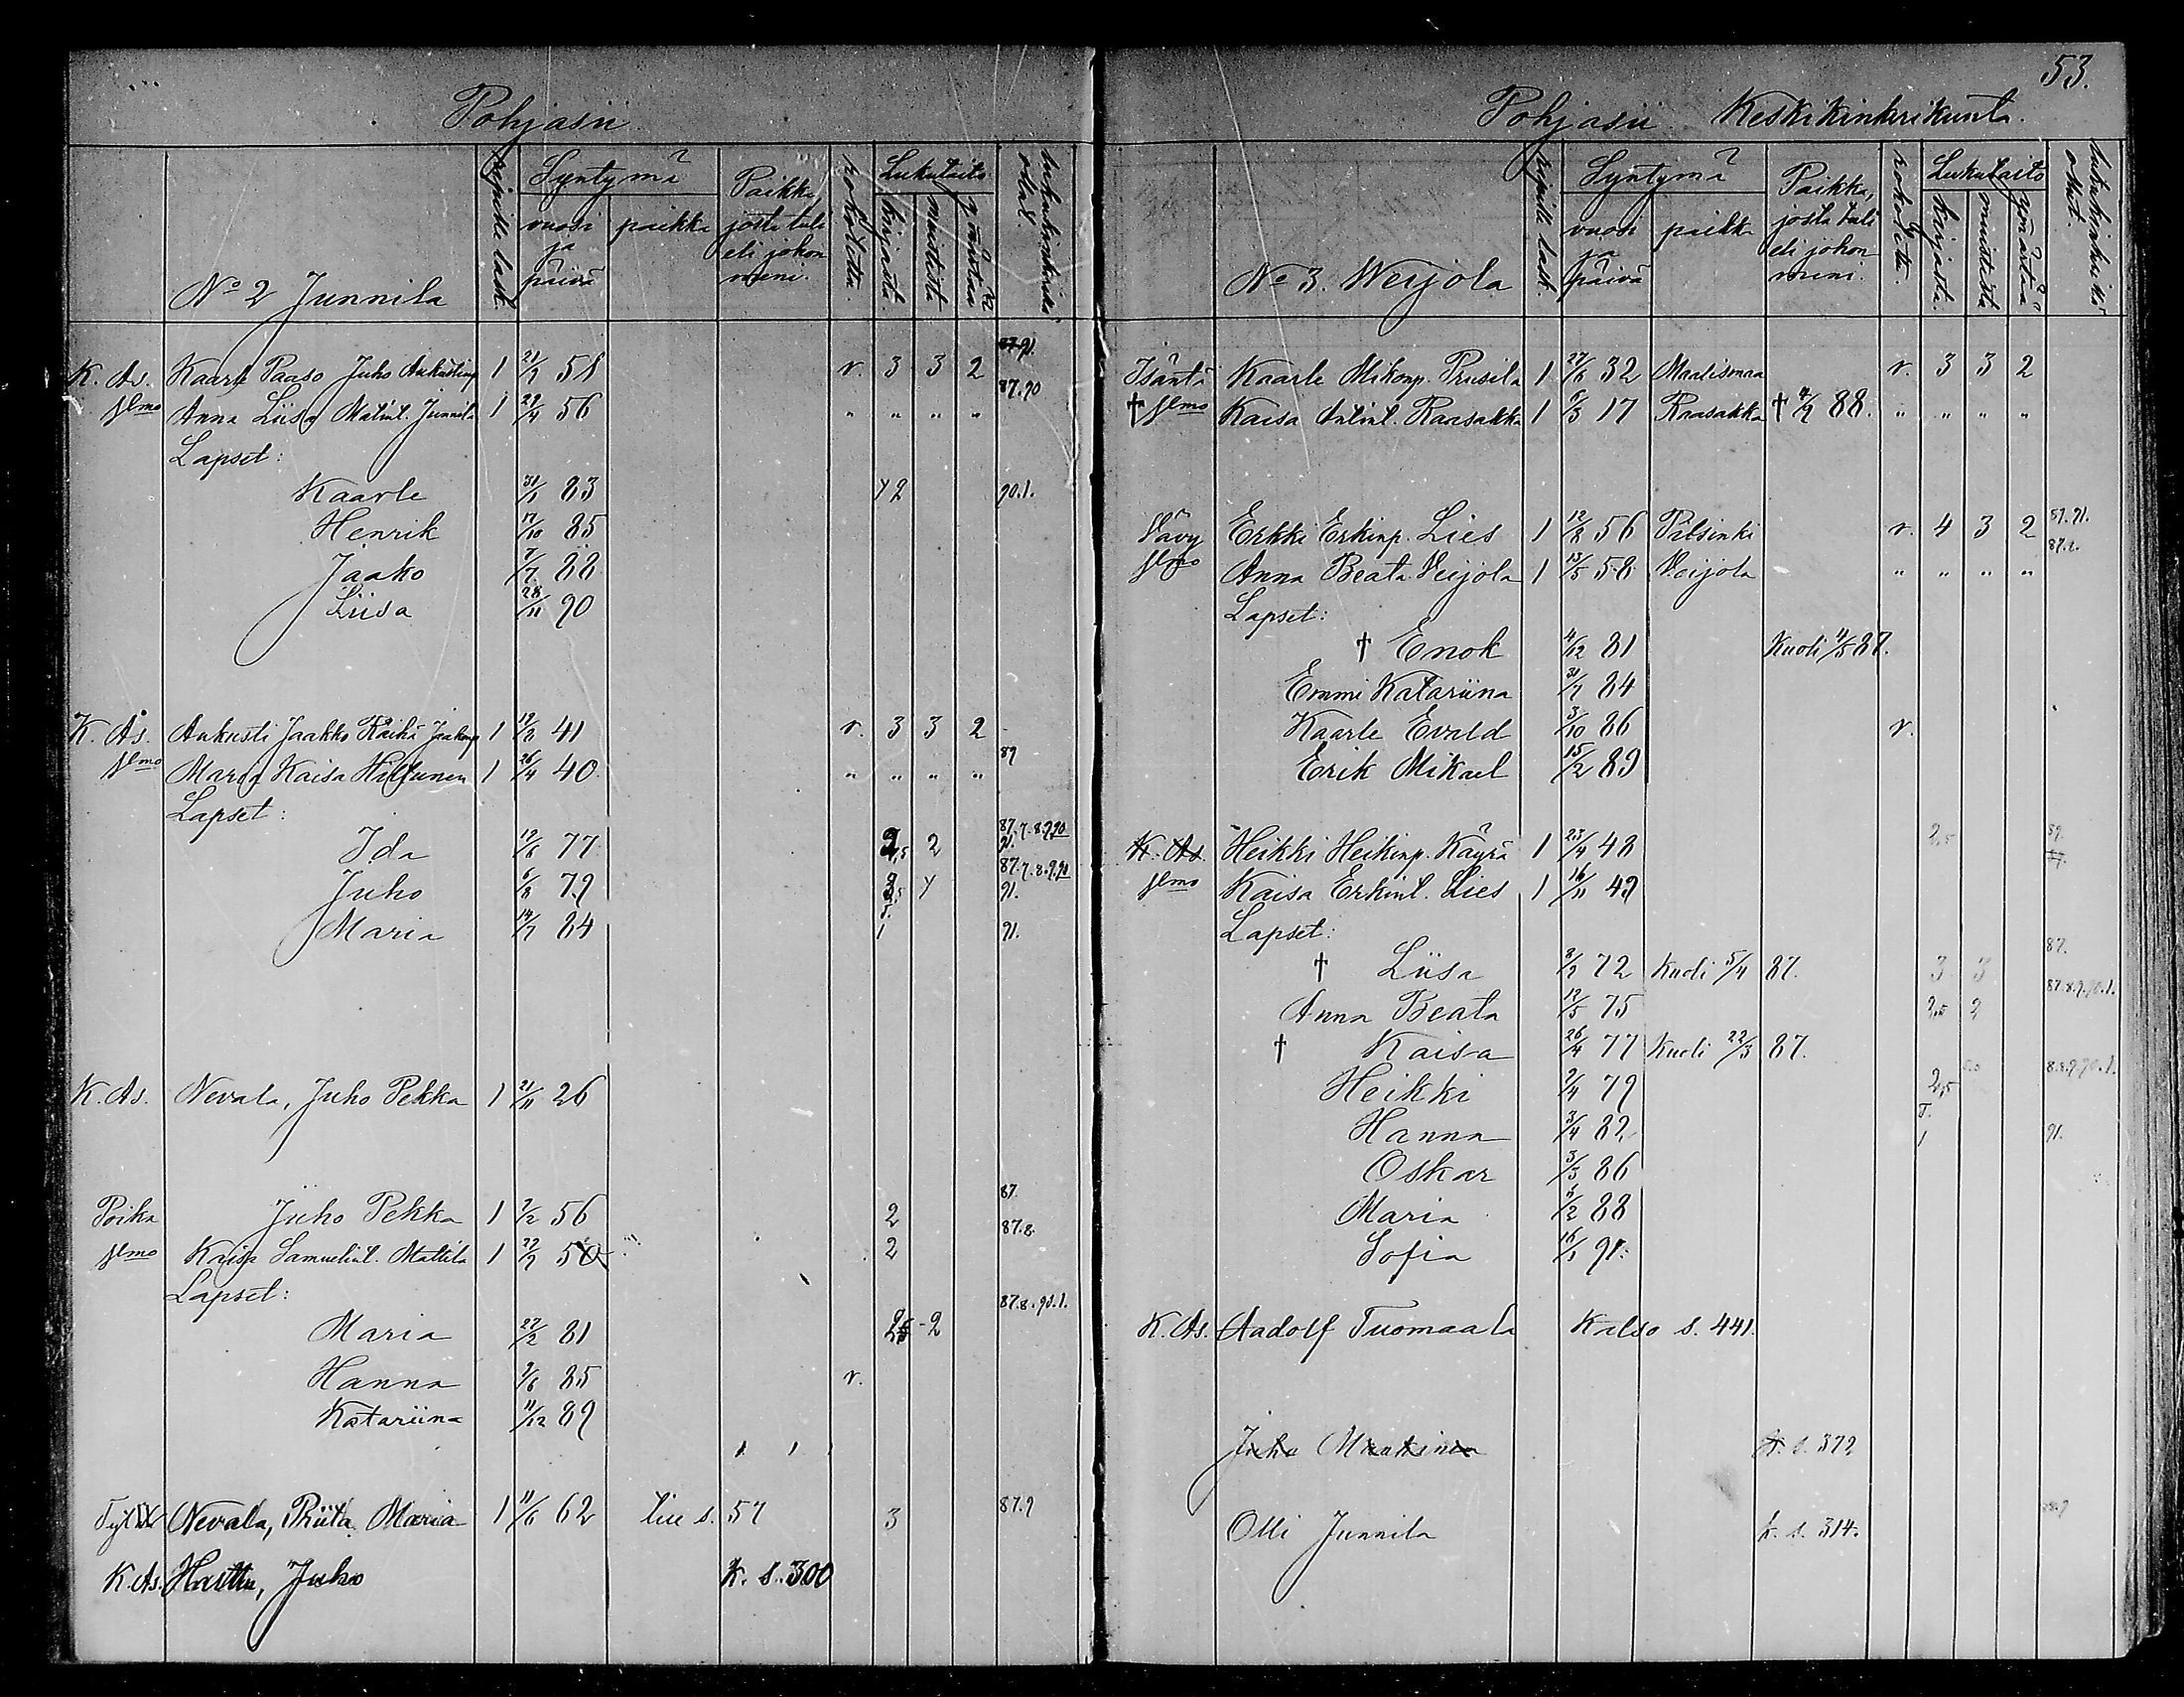 Pohjasii
Syntymä Paikka, Lukutaito
ripille lask. vuosi ja päivä paikka josta tuli eli johon meni. rokotettu. kirjasta. muistista ymärtää
No 2 Junnila
K. As. Kaarle Paaso Juho Aukustinp 1 21/7 58 r. 3 3 2 87.91.
Anna Liisa Matint. Junnila 1 29/4 56 " " " " 87.90
Lapset:
Kaarle 31/1 83 42 90.1.
Henrik 17/10 85
Jaako 7/7 88
Liisa 28/11 90
K. As. Aukusti Jaakko Räihä Jaakonp 1 19/2 41 r. 3 3 2
Maria Kaisa Hiltunen 1 26/4 40 " " " " 89
Lapset:
Ida 19/6 77 2 87.7.8.9.90 91.
Juho 6/8 79 4 87.7.8.9.90 91.
Maria 14/7 84 1 91.
K. As. Nevala, Juho Pekka 1 21/11 26
Poika Juho Pekka 1 7/2 56 2 87
Kaisa Samuelint. Mattila 1 22/7 50 2 87.8.
Lapset:
Maria 22/2 81 2,5 - 2 87.8.90.1.
Hanna 9/6 85 r.
Katariina 11/12 89
Nevala, Riita Maria 1 11/6 62 Siu s. 57 3 87.9
K. As. Harttu, Juho K. s. 300
53.
Pohjasii Keskikinkerikunta.
Syntymä Paikka, Lukutaito
ripille lask. vuosi ja päivä paikka josta tuli eli johon meni. rokotettu. kirjasta. muistista ymärtää
No 3. Werjola
Isäntä Kaarle Mikonp. Prusila 1 27/6 32 Maalismaa r. 3 3 2
† Kaisa Antint. Raasakka 1 6/3 17 Raasakka † 4/9 88. " " " "
Vävy Erkki Erkinp. Lies 1 12/8 56 Pilsinki r. 4 3 2 89.91.
Anna Beata Veijola 1 13/5 58 Veijola " " " " 87.8.
Lapset:
† Enok 4/12 81 Kuoli 4/5 87.
Emmi Katariina 31/7 84
Kaarle Evald 3/10 86 r.
Erik Mikael 15/2 89
K. As. Heikki Heikinp. Käyrä 1 23/4 48 2,5 89
Kaisa Erkint. Lies 1 16/11 49
Lapset:
† Liisa 8/2 72 Kuoli 5/4 87. 3 3 87.
Anna Beata 12/5 75 2,5 2 87.8.9.90.1.
† Kaisa 26/4 77 Kuoli 22/3 87.
Heikki 2/4 79 2,5 8.8.9.90.1.
Hanna 3/4 82 1 91.
Oskar 3/3 86
Maria 6/2 88
Sofia 16/1 91.
K. As. Aadolf Tuomaala Katso s. 441.
Juho Maatinen K. s. 372
Olli Junnila k. s. 314.